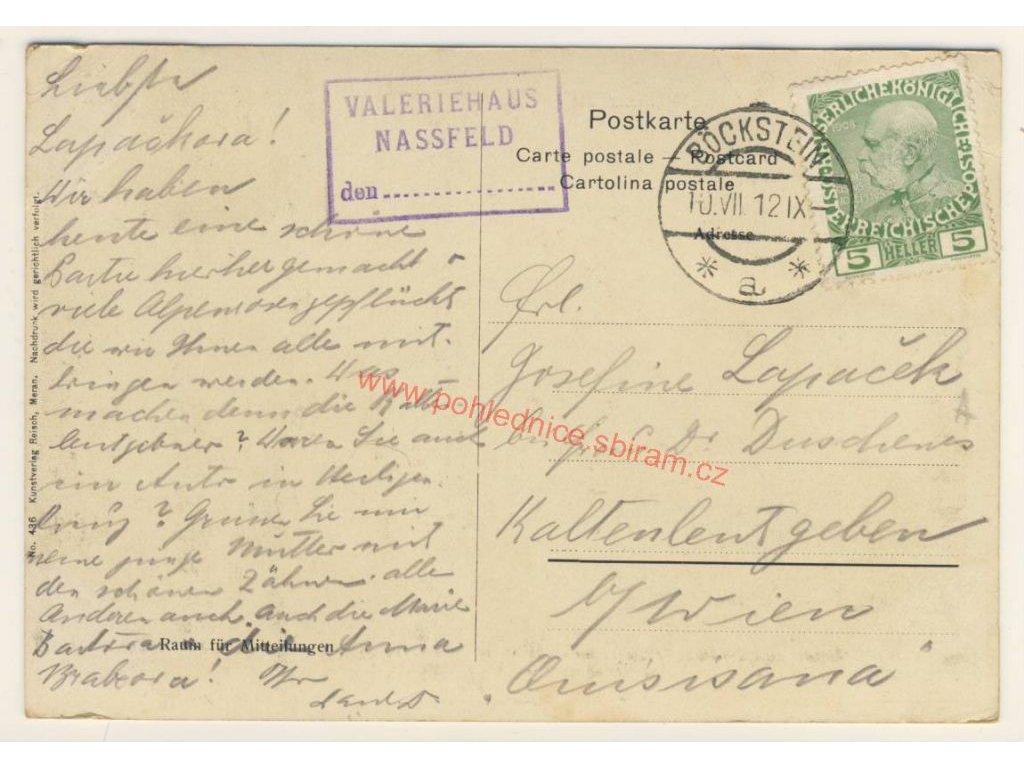 Liebste
Lapačkova!
Wir haben
heute eine schöne
Partie hierher gemacht -
viele Alpenrosen gepflückt
die wir Ihnen alle mit-
bringen werden. Was
machen denn die Kalten-
leutgebner? Waren Sie auch
ein Auto in Heiligen-
kreuz? Grüssen Sie mir
meine junge Mutter mit
den schönen Zähnen. alle
Anderen auch, auch die Marie
die Anna
Brabcova!
VALERIEHAUS
NASSFELD
den
Postkarte
Carte postale — Postcard
Cartolina postale
Adresse
BÖCKSTEIN
10.VII.12 IX
* a *
KAISERLICHE KÖNIGLICHE ÖSTERREICHISCHE POST
1908
5 HELLER 5
Frl.
Josefine Lapaček
bei Dr Duschenes
Kaltenleutgeben
b/Wien
„Quisisana“
Raum für Mitteilungen
No. 436 Kunstverlag Reisch, Meran. Nachdruck wird gerichtlich verfolgt.
www.pohlednice.sbiram.cz